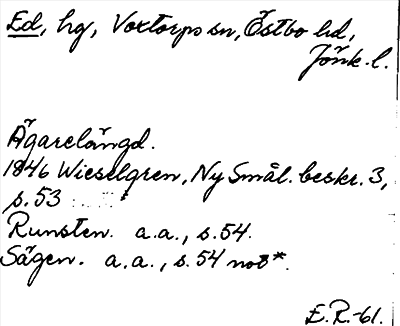 Ed, hg, Voxtorps sn, Östbo hd,
Jönk. l.
Ägarelängd.
1846 Wieselgren, Ny Smål. beskr. 3,
s. 53
Runsten. a.a., s. 54.
Sägen. a.a., s. 54 not*.
E.R.-61.